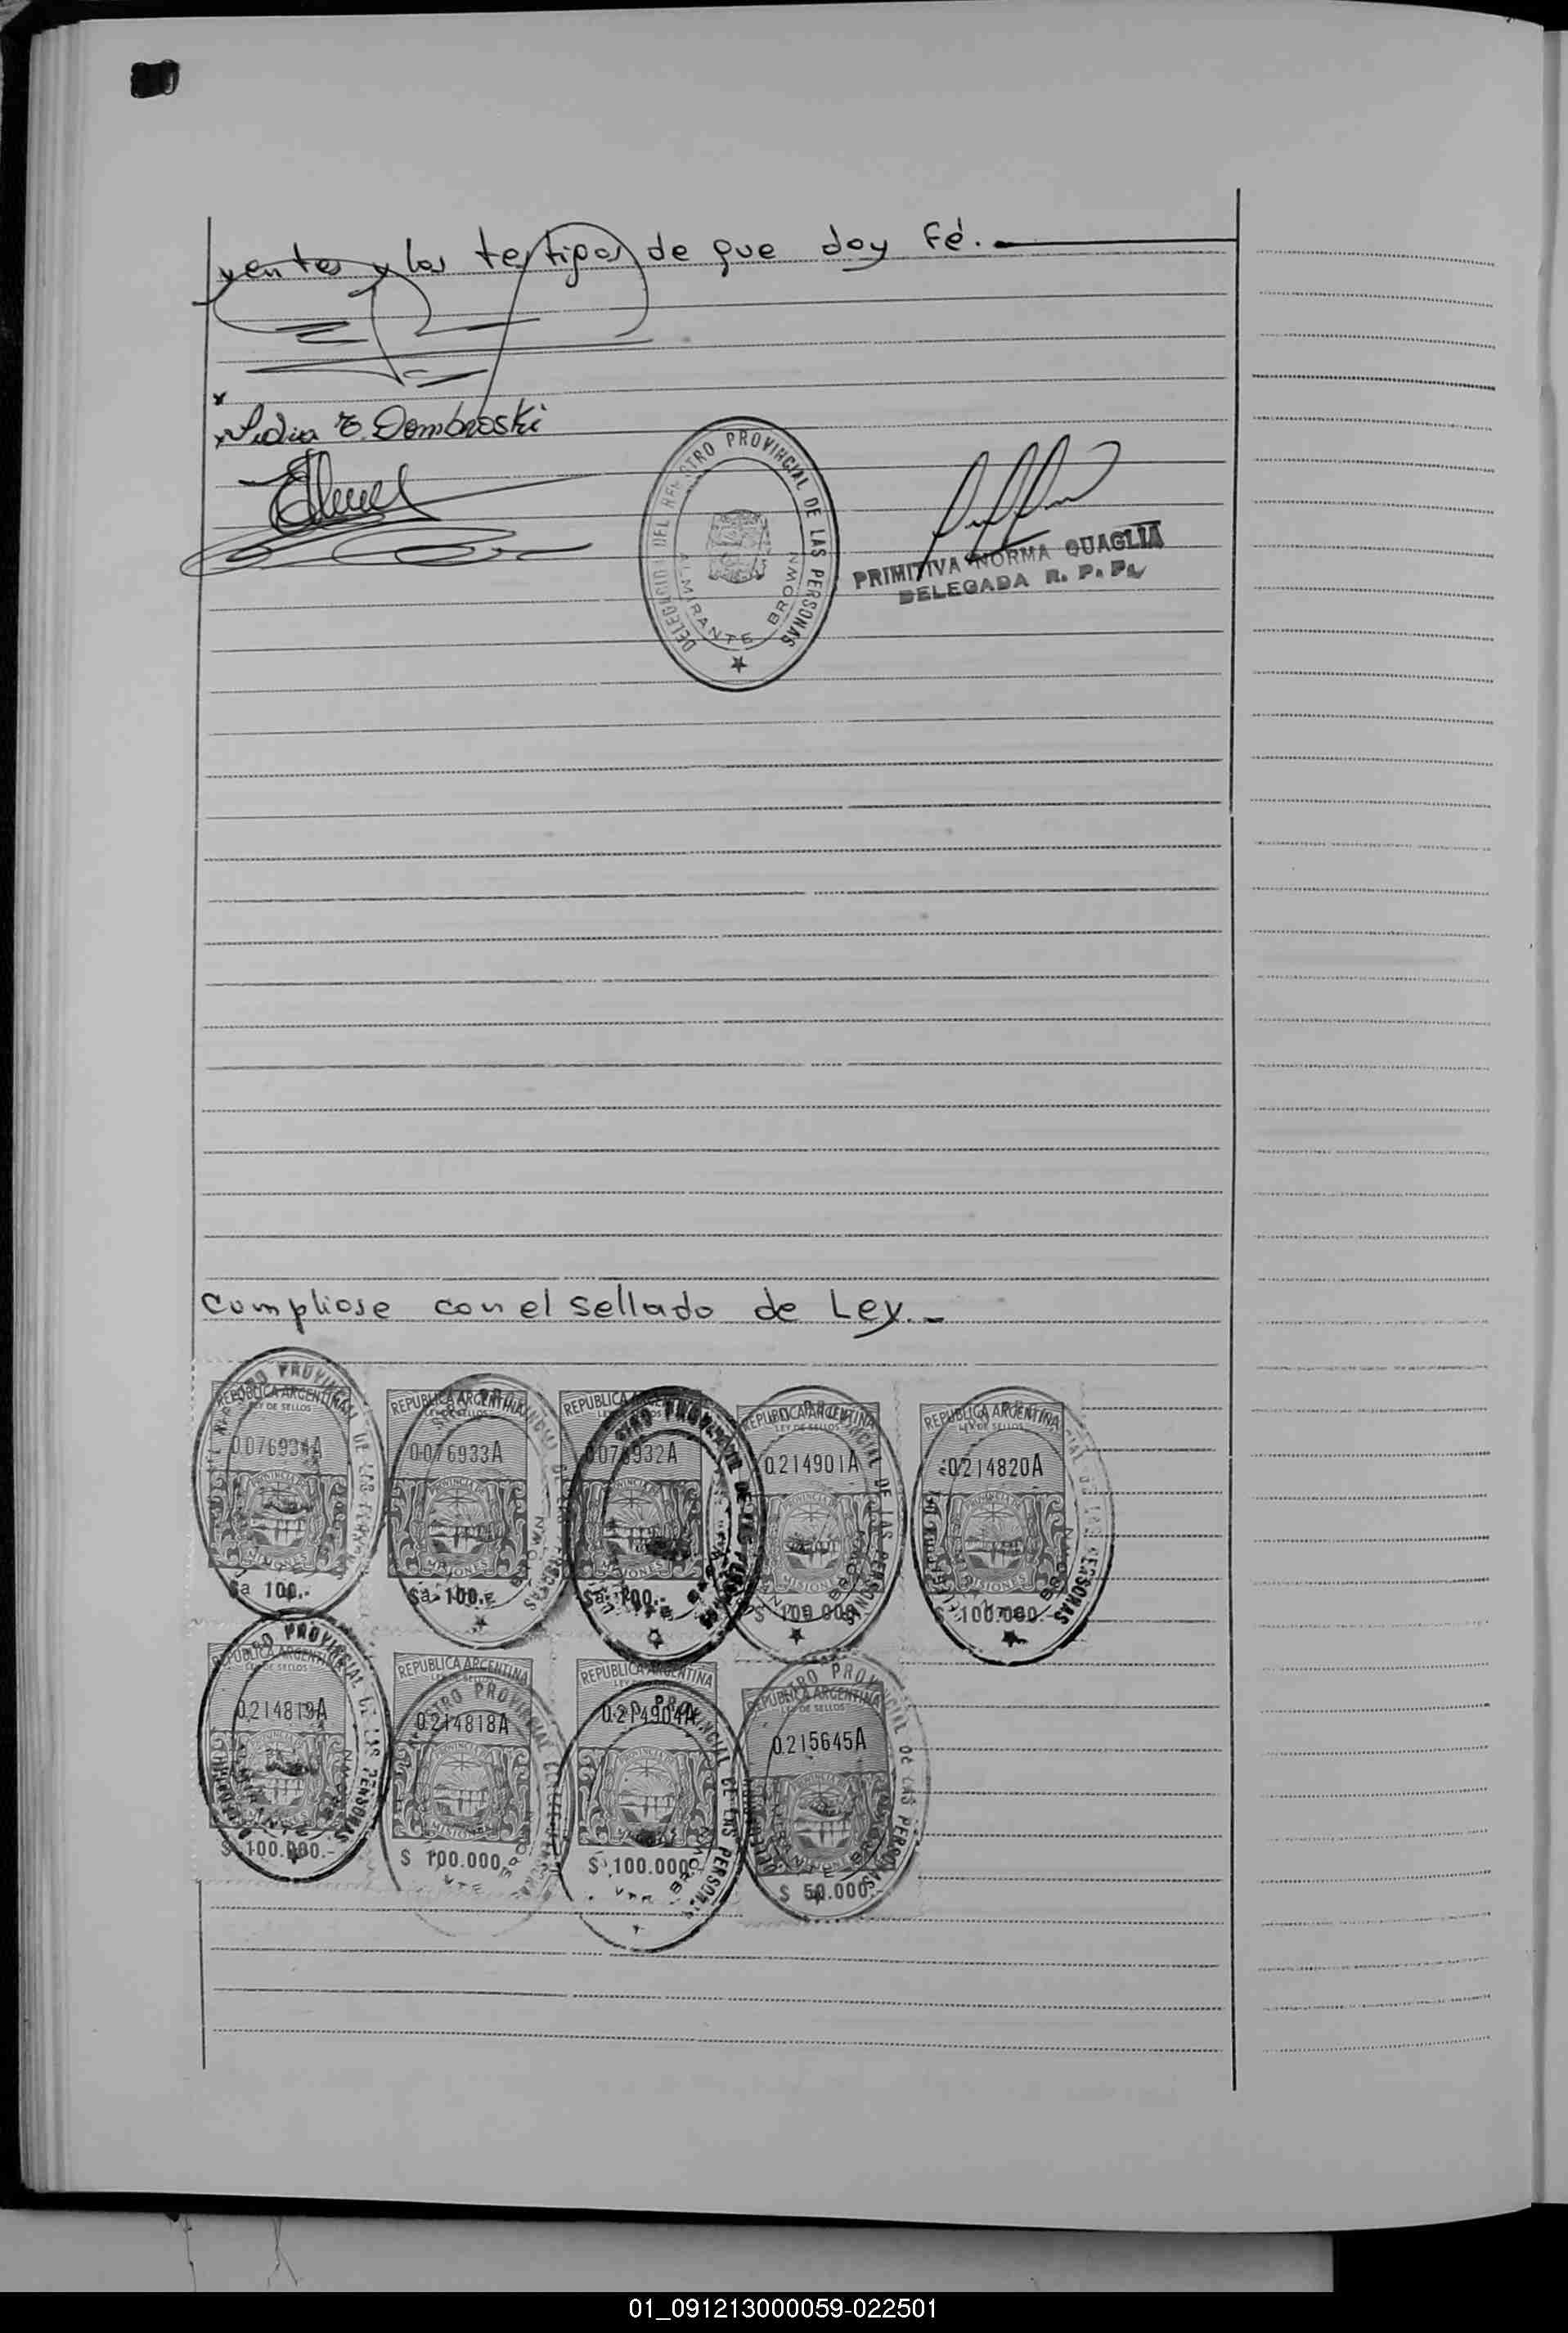 yentes y los testigos de que doy fé.
x
x Lidia E. Dombroski
DELEGACION DEL REGISTRO PROVINCIAL DE LAS PERSONAS
ALMIRANTE BROWN
PRIMITIVA NORMA QUAGLIA
DELEGADA R. P. P.
Cumpliose con el sellado de Ley.-
REPUBLICA ARGENTINA
LEY DE SELLOS
0076934A
PROVINCIA DE
MISIONES
$a 100.-
REPUBLICA ARGENTINA
LEY DE SELLOS
0076933A
PROVINCIA DE
MISIONES
$a 100.-
REPUBLICA ARGENTINA
LEY DE SELLOS
0076932A
PROVINCIA DE
MISIONES
$a 100.-
REPUBLICA ARGENTINA
LEY DE SELLOS
0214901A
PROVINCIA DE
MISIONES
$ 100.000.-
REPUBLICA ARGENTINA
LEY DE SELLOS
0214820A
PROVINCIA DE
MISIONES
$ 100.000.-
REPUBLICA ARGENTINA
LEY DE SELLOS
0214819A
PROVINCIA DE
MISIONES
$ 100.000.-
REPUBLICA ARGENTINA
LEY DE SELLOS
0214818A
PROVINCIA DE
MISIONES
$ 100.000.-
REPUBLICA ARGENTINA
LEY DE SELLOS
0214904A
PROVINCIA DE
MISIONES
$ 100.000.-
REPUBLICA ARGENTINA
LEY DE SELLOS
0215645A
PROVINCIA DE
MISIONES
$ 50.000.-
01_091213000059-022501